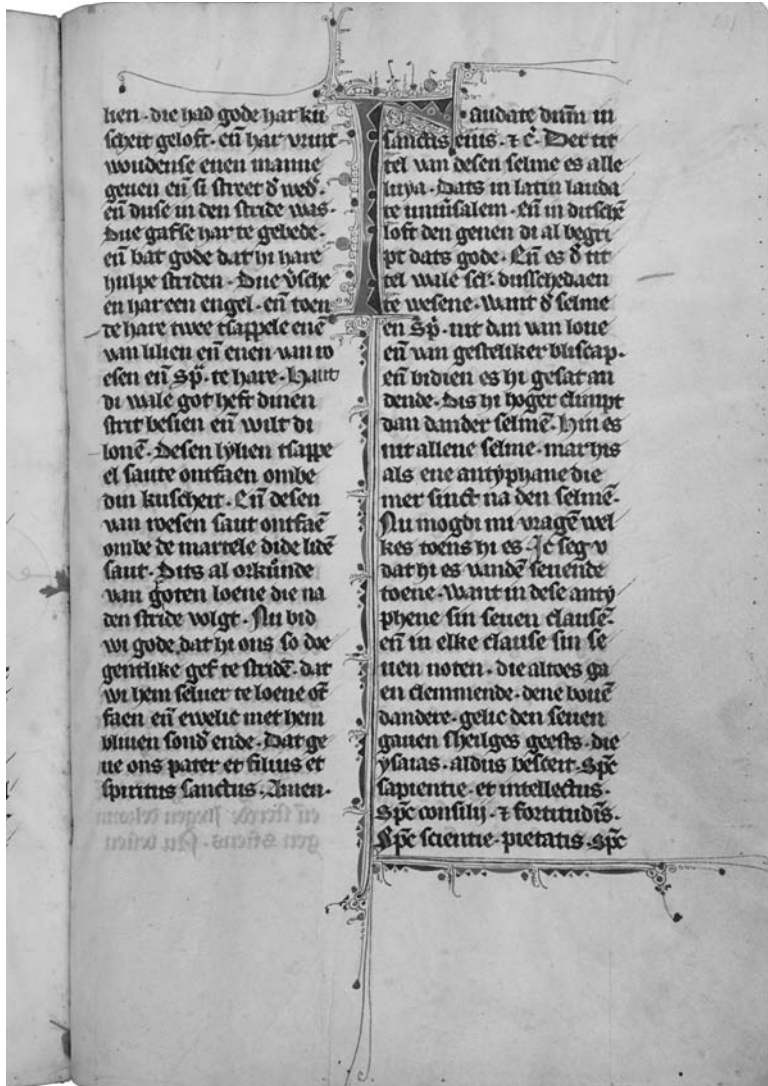 lien · die had gode har ku
scheit geloft · en̄ har vrint
woudense enen manne
geuen en̄ si street d̕ wed̕ ·
en̄ duse in den stride was ·
Due gafse har te gebede ·
en̄ bat gode dat hi hare
hulpe striden · Due v̕sche
en har een engel · en̄ toen
de hare twee tsappele enē
van lilien en̄ enen van ro
esen en̄ sp̄ · te hare · Haut
di wale got heft dinen
strit besien en̄ wilt di
lonē · Desen lylien tsappe
el saute ontfaen ombe
din kuscheit · En̄ desen
van roesen saut ontfaē
ombe de martele dide lidē
saut · Dits al orkunde
van goten loene die na
den stride volgt · Nu bid
wi gode dat hi ons so doe
gentlike gef te stridē · dat
wi hem seluer te loene ōt
faen en̄ ewelic met hem
bliuen sond̕ ende · Dat ge
ue ons pater et filius et
spiritus sanctus · Amen ·
Laudate dn̄m in
sanctis eius · ⁊ c̄ · Der tit
tel van desen selme es alle
luya · Dats in latin lauda
te uniu̕salem · en̄ in ditschē
loft den genen di al begri
pt dats gode · En̄ es d̕ tit
tel wale sel̕ · dusschedaen
te wesene · want d̕ selme
en Sp̄ · nit dan van loue
en̄ van gesteliker bliscap ·
en̄ bidien es hi gesat an
dende · Dis hi hoger climpt
dan dander selmē · Hin es
nit allene selme · mar his
als ene antyphane die
mer sinct na den selmē ·
Nu mogdi mi vragē wel
kes toens hi es · Jc seg v
dat hi es vandē seuende
toene · want in dese anty
phene sin seuen clausē ·
en̄ in elke clause sin se
uen noten · die altoes ga
en clemmende · dene bouē
dandere · gelic den seuen
gauen sheilges geests · die
ysaias · aldus bescrit · Spc̄
sapientie · et intellectus ·
Spc̄ consilij · ⁊ fortitudīs ·
Spc̄ scientie · pietatis · spc̄